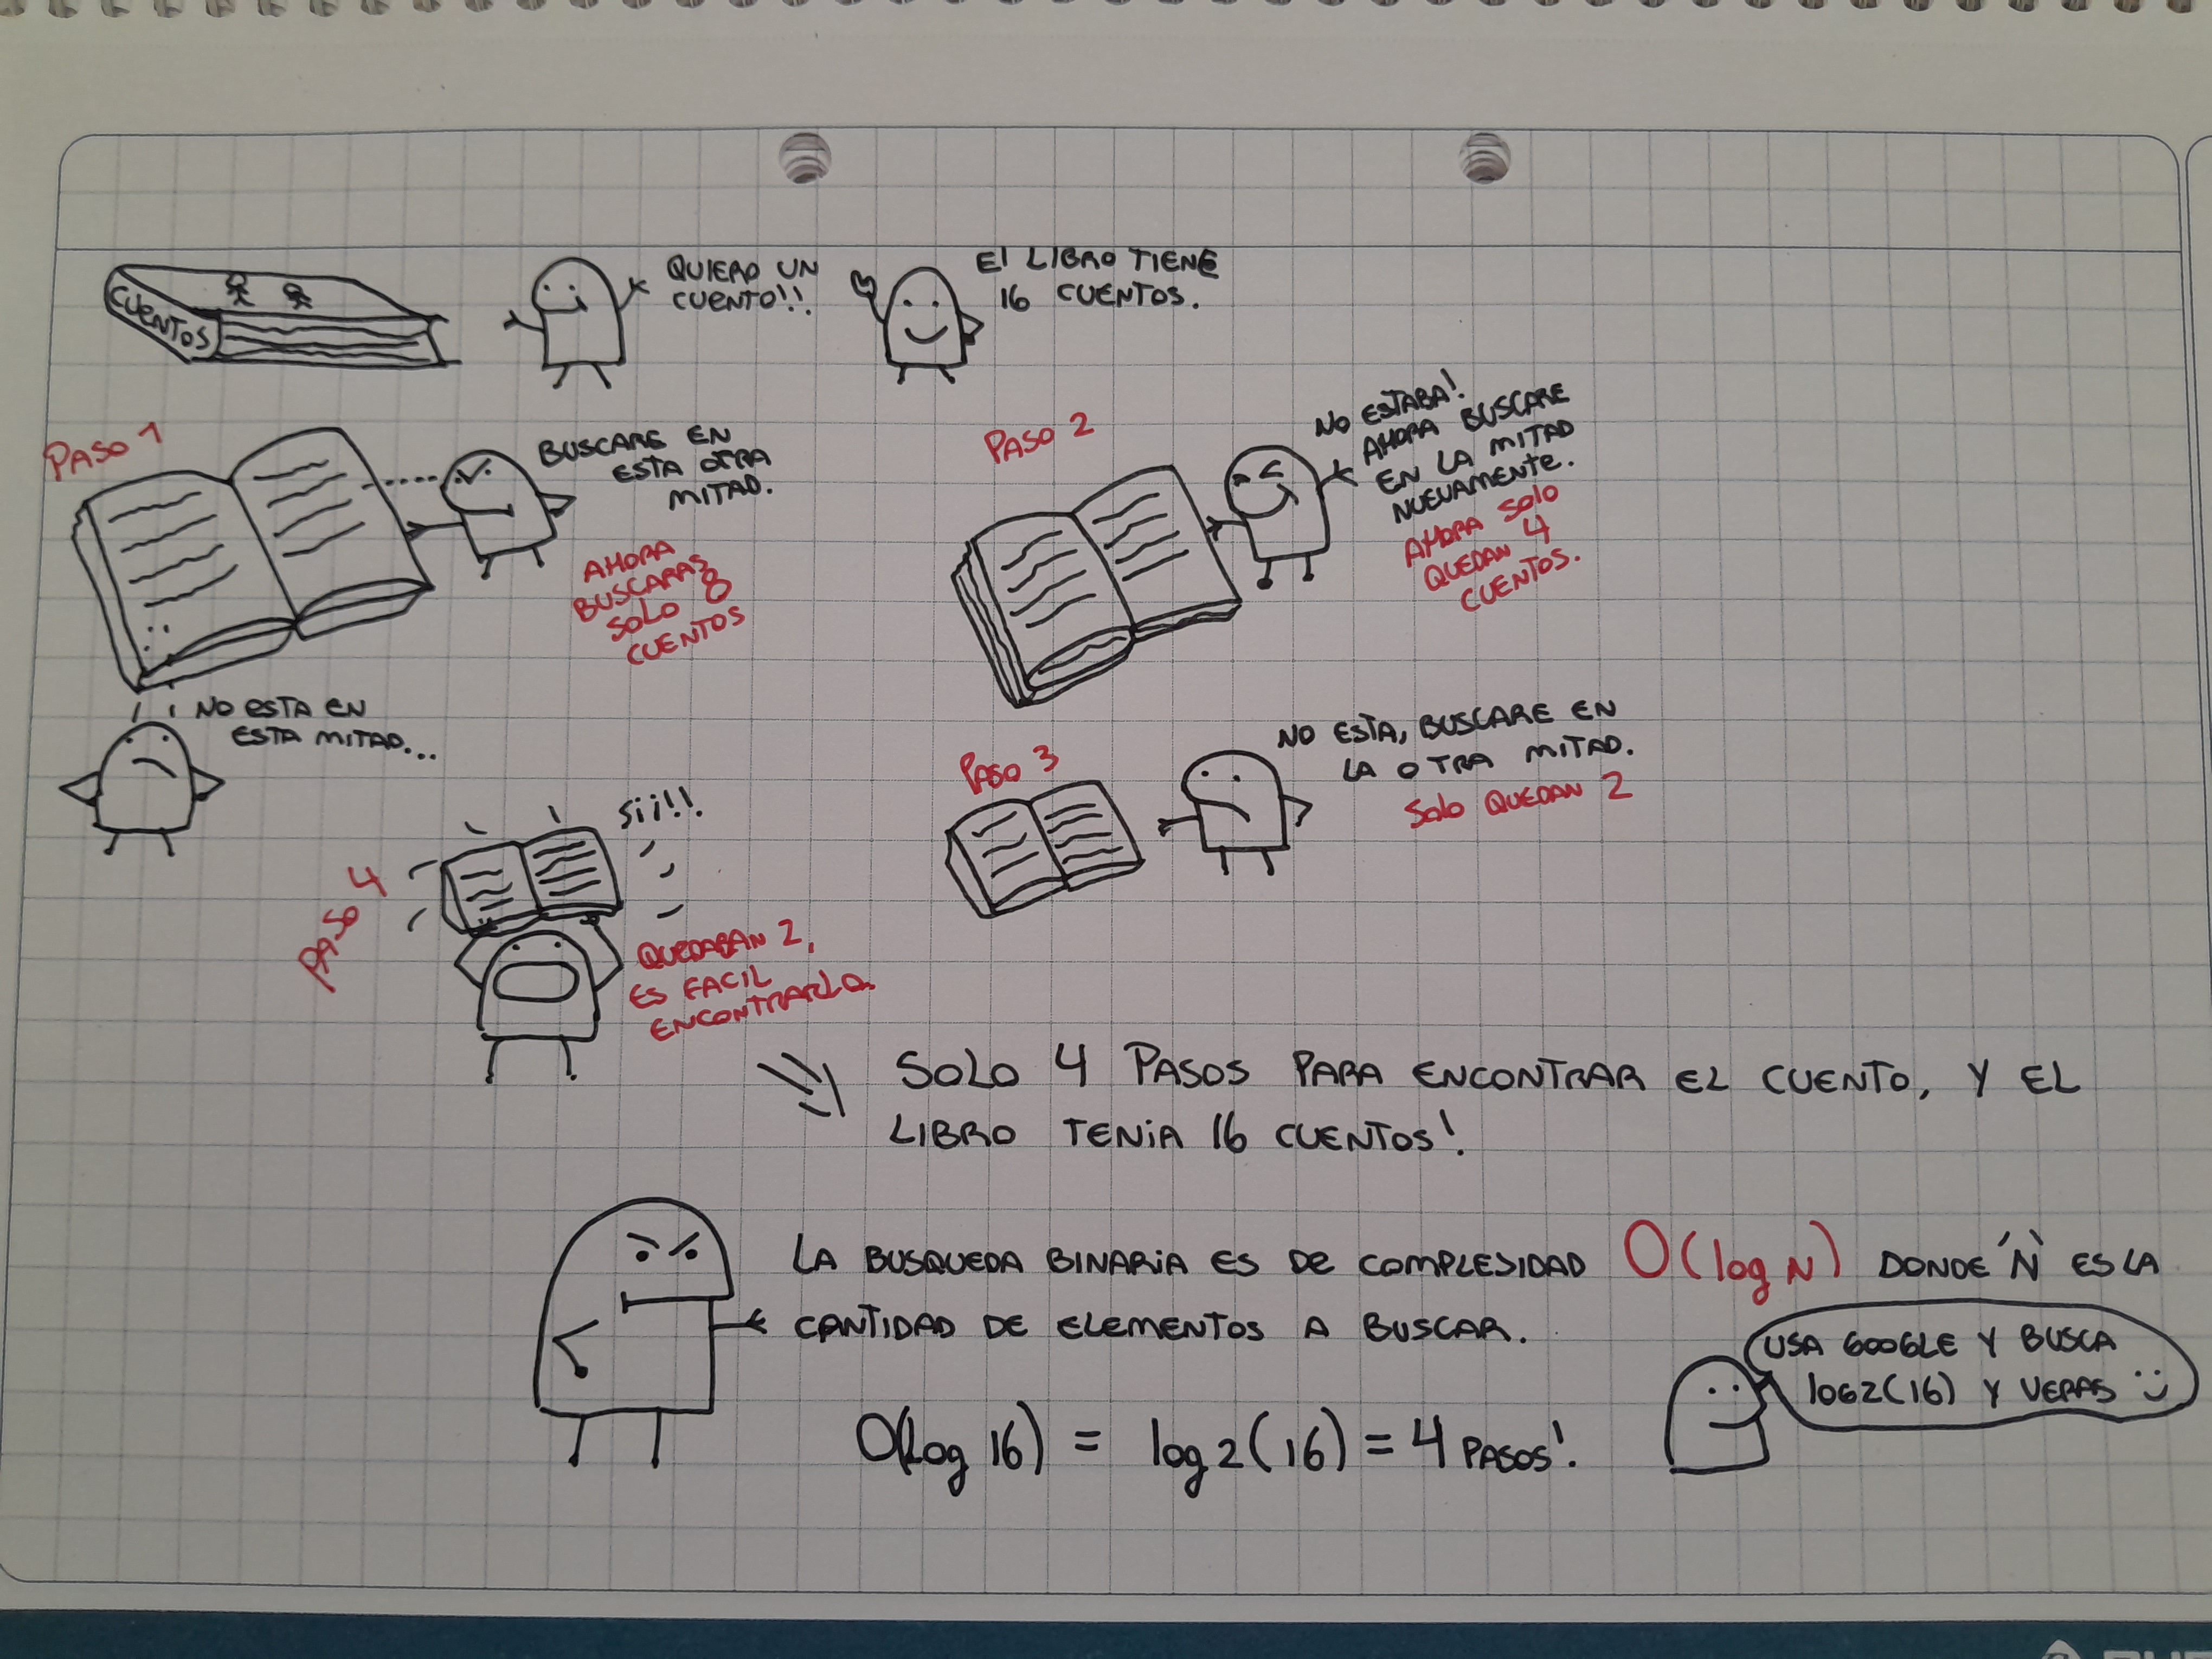 CUENTOS
QUIERO UN
CUENTO!!
El LIBRO TIENE
16 CUENTOS.
PASO 1
BUSCARE EN
ESTA OTRA
MITAD.
AHORA
BUSCARAS
SOLO 8
CUENTOS
NO ESTA EN
ESTA MITAD...
PASO 2
NO ESTABA!
AHORA BUSCARE
EN LA MITAD
NUEVAMENTE.
AHORA SOLO
QUEDAN 4
CUENTOS.
PASO 3
NO ESTA, BUSCARE EN
LA OTRA MITAD.
Solo QUEDAN 2
PASO 4
Sii!!
QUEDABAN 2,
ES FACIL
ENCONTRARLO.
SOLO 4 PASOS PARA ENCONTRAR EL CUENTO, Y EL
LIBRO TENIA 16 CUENTOS!
LA BUSQUEDA BINARIA ES DE COMPLESIDAD O(log N) DONDE 'N' ES LA
CANTIDAD DE ELEMENTOS A BUSCAR.
USA GOOGLE Y BUSCA
log2(16) Y VERAS :)
O(Log 16) = log2(16) = 4 PASOS!